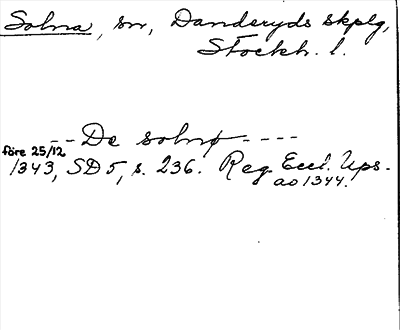 Solna, sn, Danderyds skplg,
Stockh. l.
-- De solnø ----
före 25/12
1343, SD 5, s. 236. Reg. Eccl. Ups.
ao 1344.